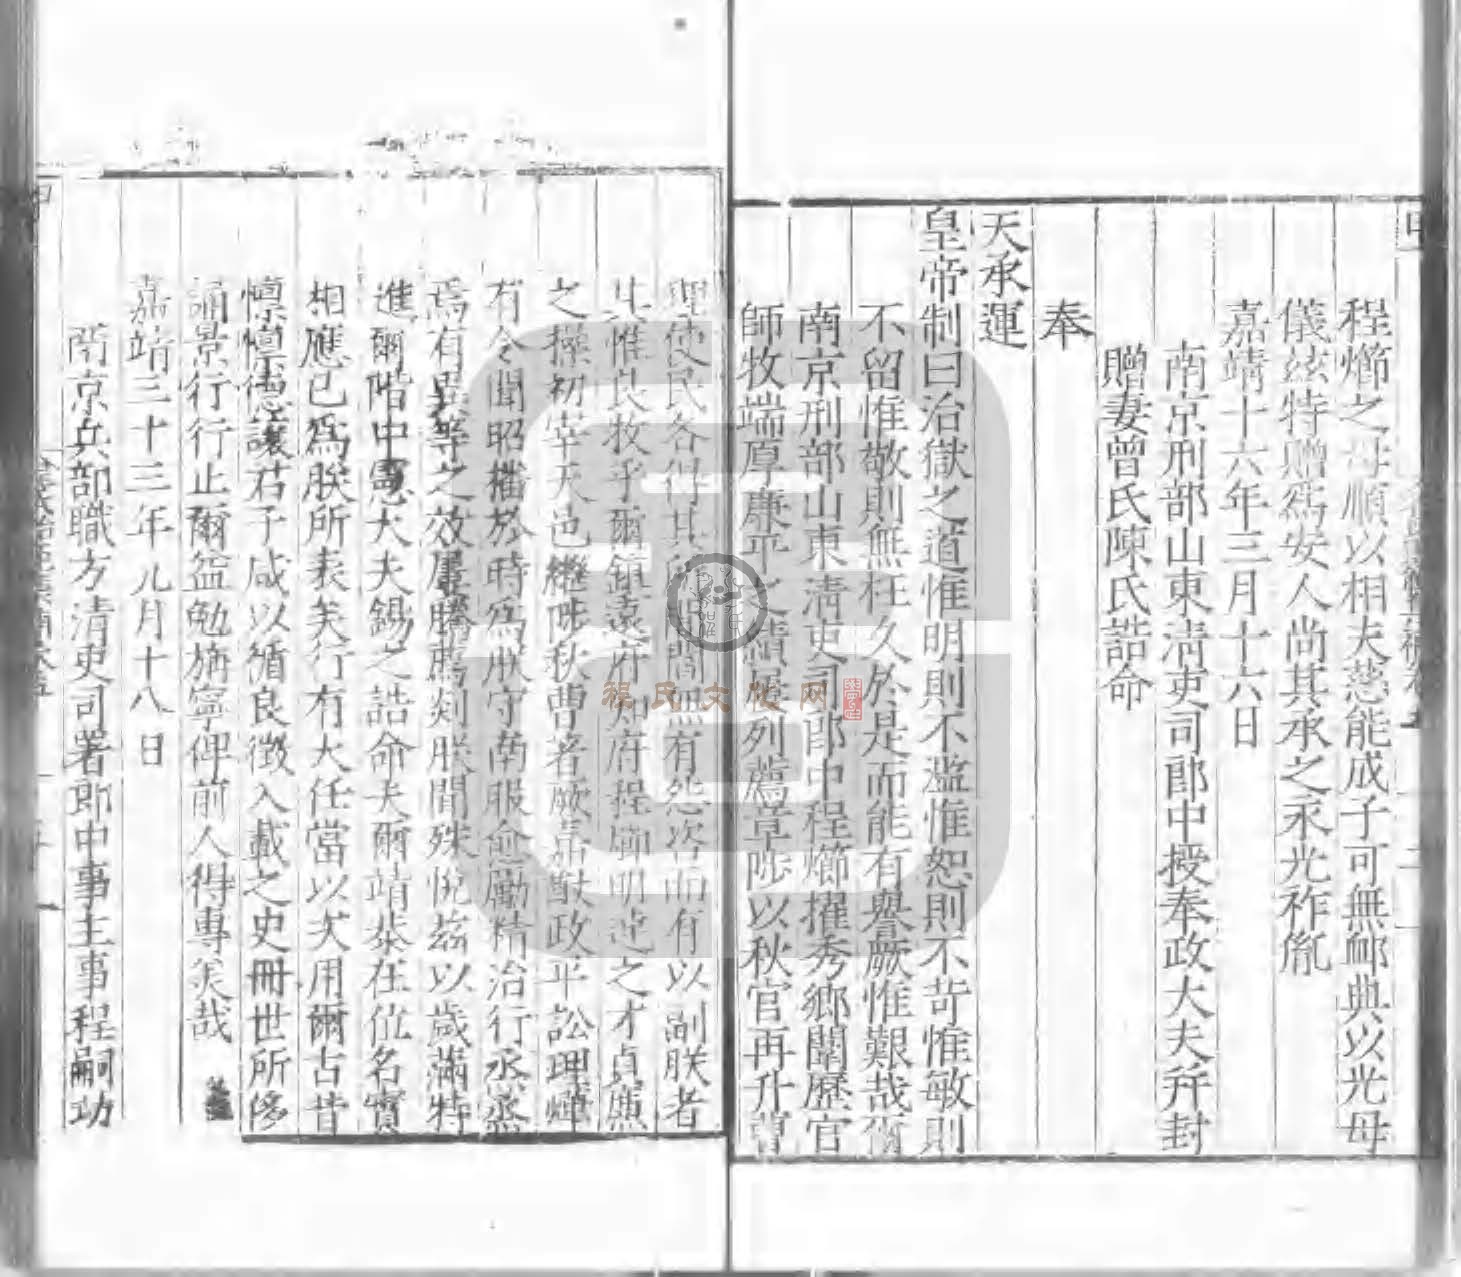 程𤒹之母順以相夫慈能成子可無䘏典以光母
儀兹特贈為安人尚其承之永光祚胤
嘉靖十六年三月十六日
南京刑部山東清吏司郎中授奉政大夫并封
贈妻曾氏陳氏誥命
奉
天承運
皇帝制曰治獄之道惟明則不濫惟恕則不苛惟敏則
不留惟敬則無枉久於是而能有譽厥惟艱哉爾
南京刑部山東清吏司郎中程𤒹擢秀鄉闈歷官
師牧端厚廉平之績屢列薦章陟以秋官再升曹
理使民各得其 田間無有怨咨而有以副朕者
其惟良牧乎爾鎮遠府知府程 明達之才貞廉
之操初宰天邑繼 秋曹著厥嘉猷政平訟理
有令聞昭 於時為朕守南服愈勵精治行丞烝
焉有異等之效屢騰薦剡朕聞殊悅兹以歲滿特
進爾階中憲大夫錫之誥命夫爾靖恭在位名實
相應已為朕所表矣行有大任當以次用爾古昔
懔懔德讓君子咸以循良徵入載之史冊世所俢
誦景行行止爾益勉旃寧俾前人得專美哉
嘉靖三十三年九月十八日
南京兵部職方清吏司署郎中事主事程嗣功
程氏文化网